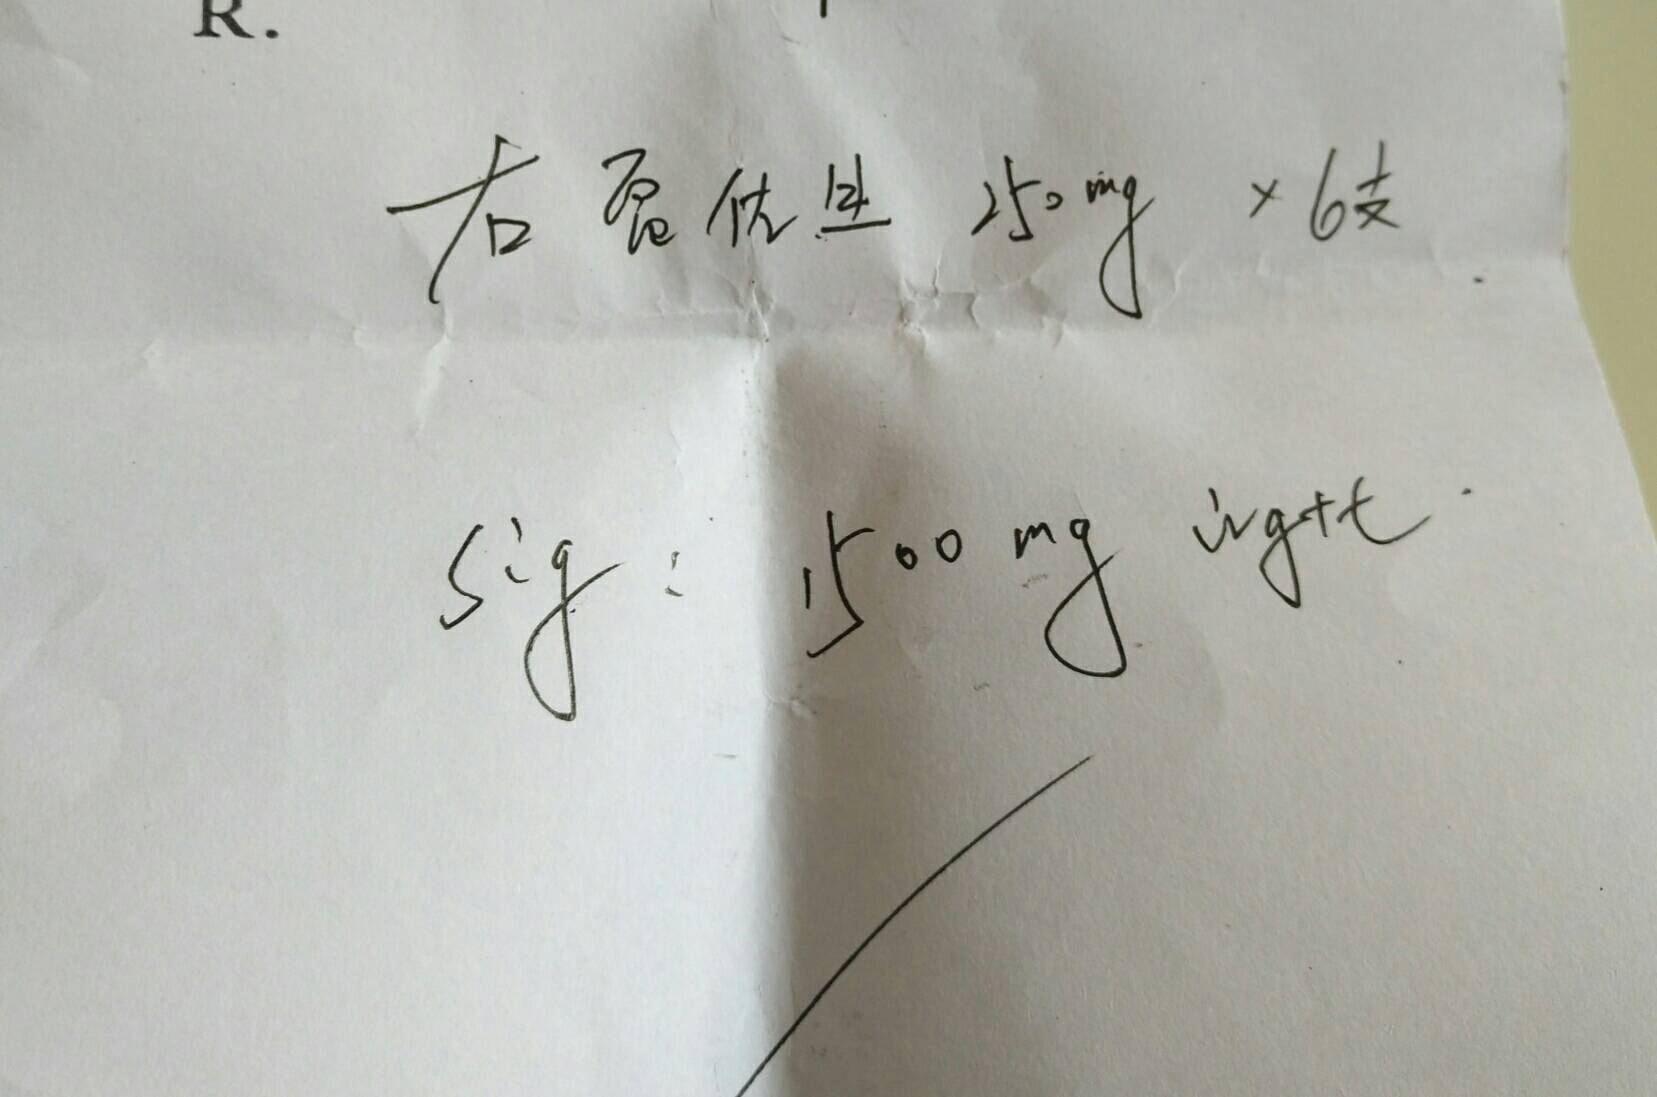 R.
250mg ×6支
Sig: 1500mg ivgtt.